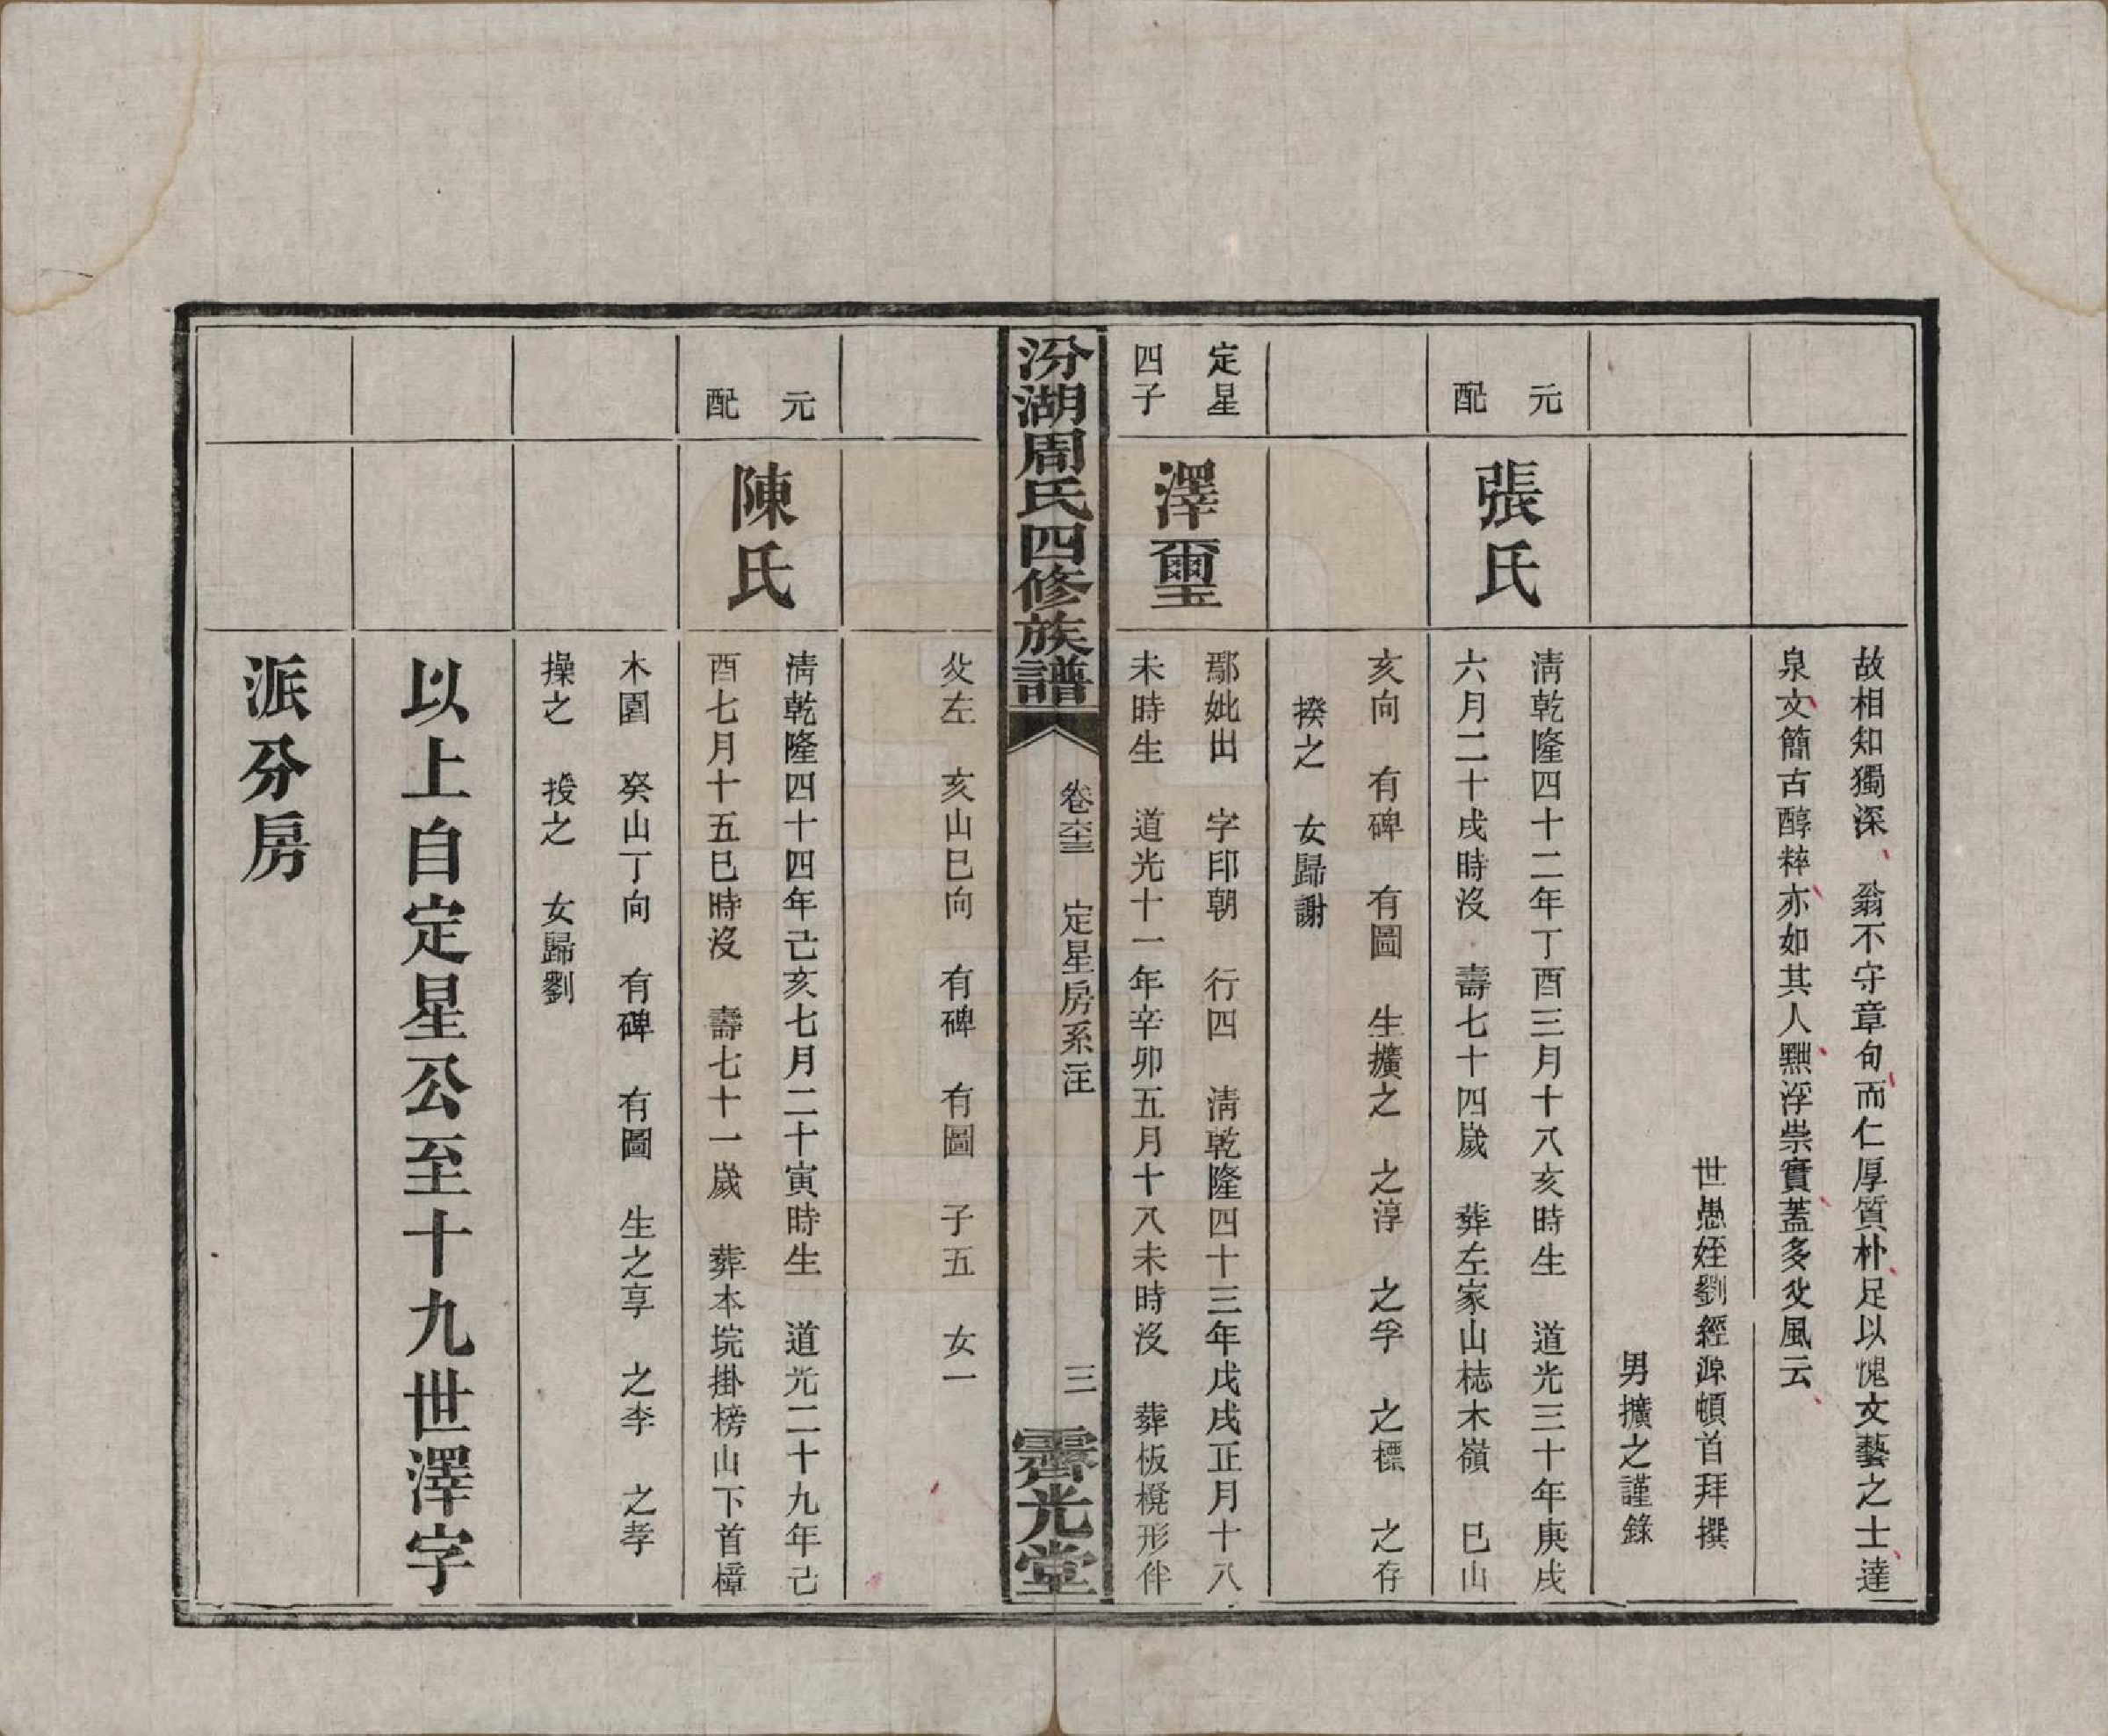 故相知獨深翁不守章句而仁厚質朴足以愧文藝之士達
泉文簡古醇粹亦如其人黜浮崇實蓋多父風云
世愚姪劉經源頓首拜撰
男擴之謹錄
元配
張氏
清乾隆四十二年丁酉三月十八亥時生 道光三十年庚戌
六月二十戌時沒 壽七十四歲 葬左家山梽木嶺 巳山
亥向 有碑 有圖 生擴之 之淳 之孚 之標 之存
揆之 女歸謝
定星四子
澤璽
鄢妣出 字印朝 行四 清乾隆四十三年戊戌正月十八
未時生 道光十一年辛卯五月十八未時沒 葬板櫈形伴
汾湖周氏四修族譜
卷六十三 定星房系注
三
霽光堂
父左 亥山巳向 有碑 有圖 子五 女一
元配
陳氏
清乾隆四十四年己亥七月二十寅時生 道光二十九年己
酉七月十五巳時沒 壽七十一歲 葬本垸掛榜山下首樟
木園 癸山丁向 有碑 有圖 生之享 之李 之孝
操之 授之 女歸劉
以上自定星公至十九世澤字
派分房